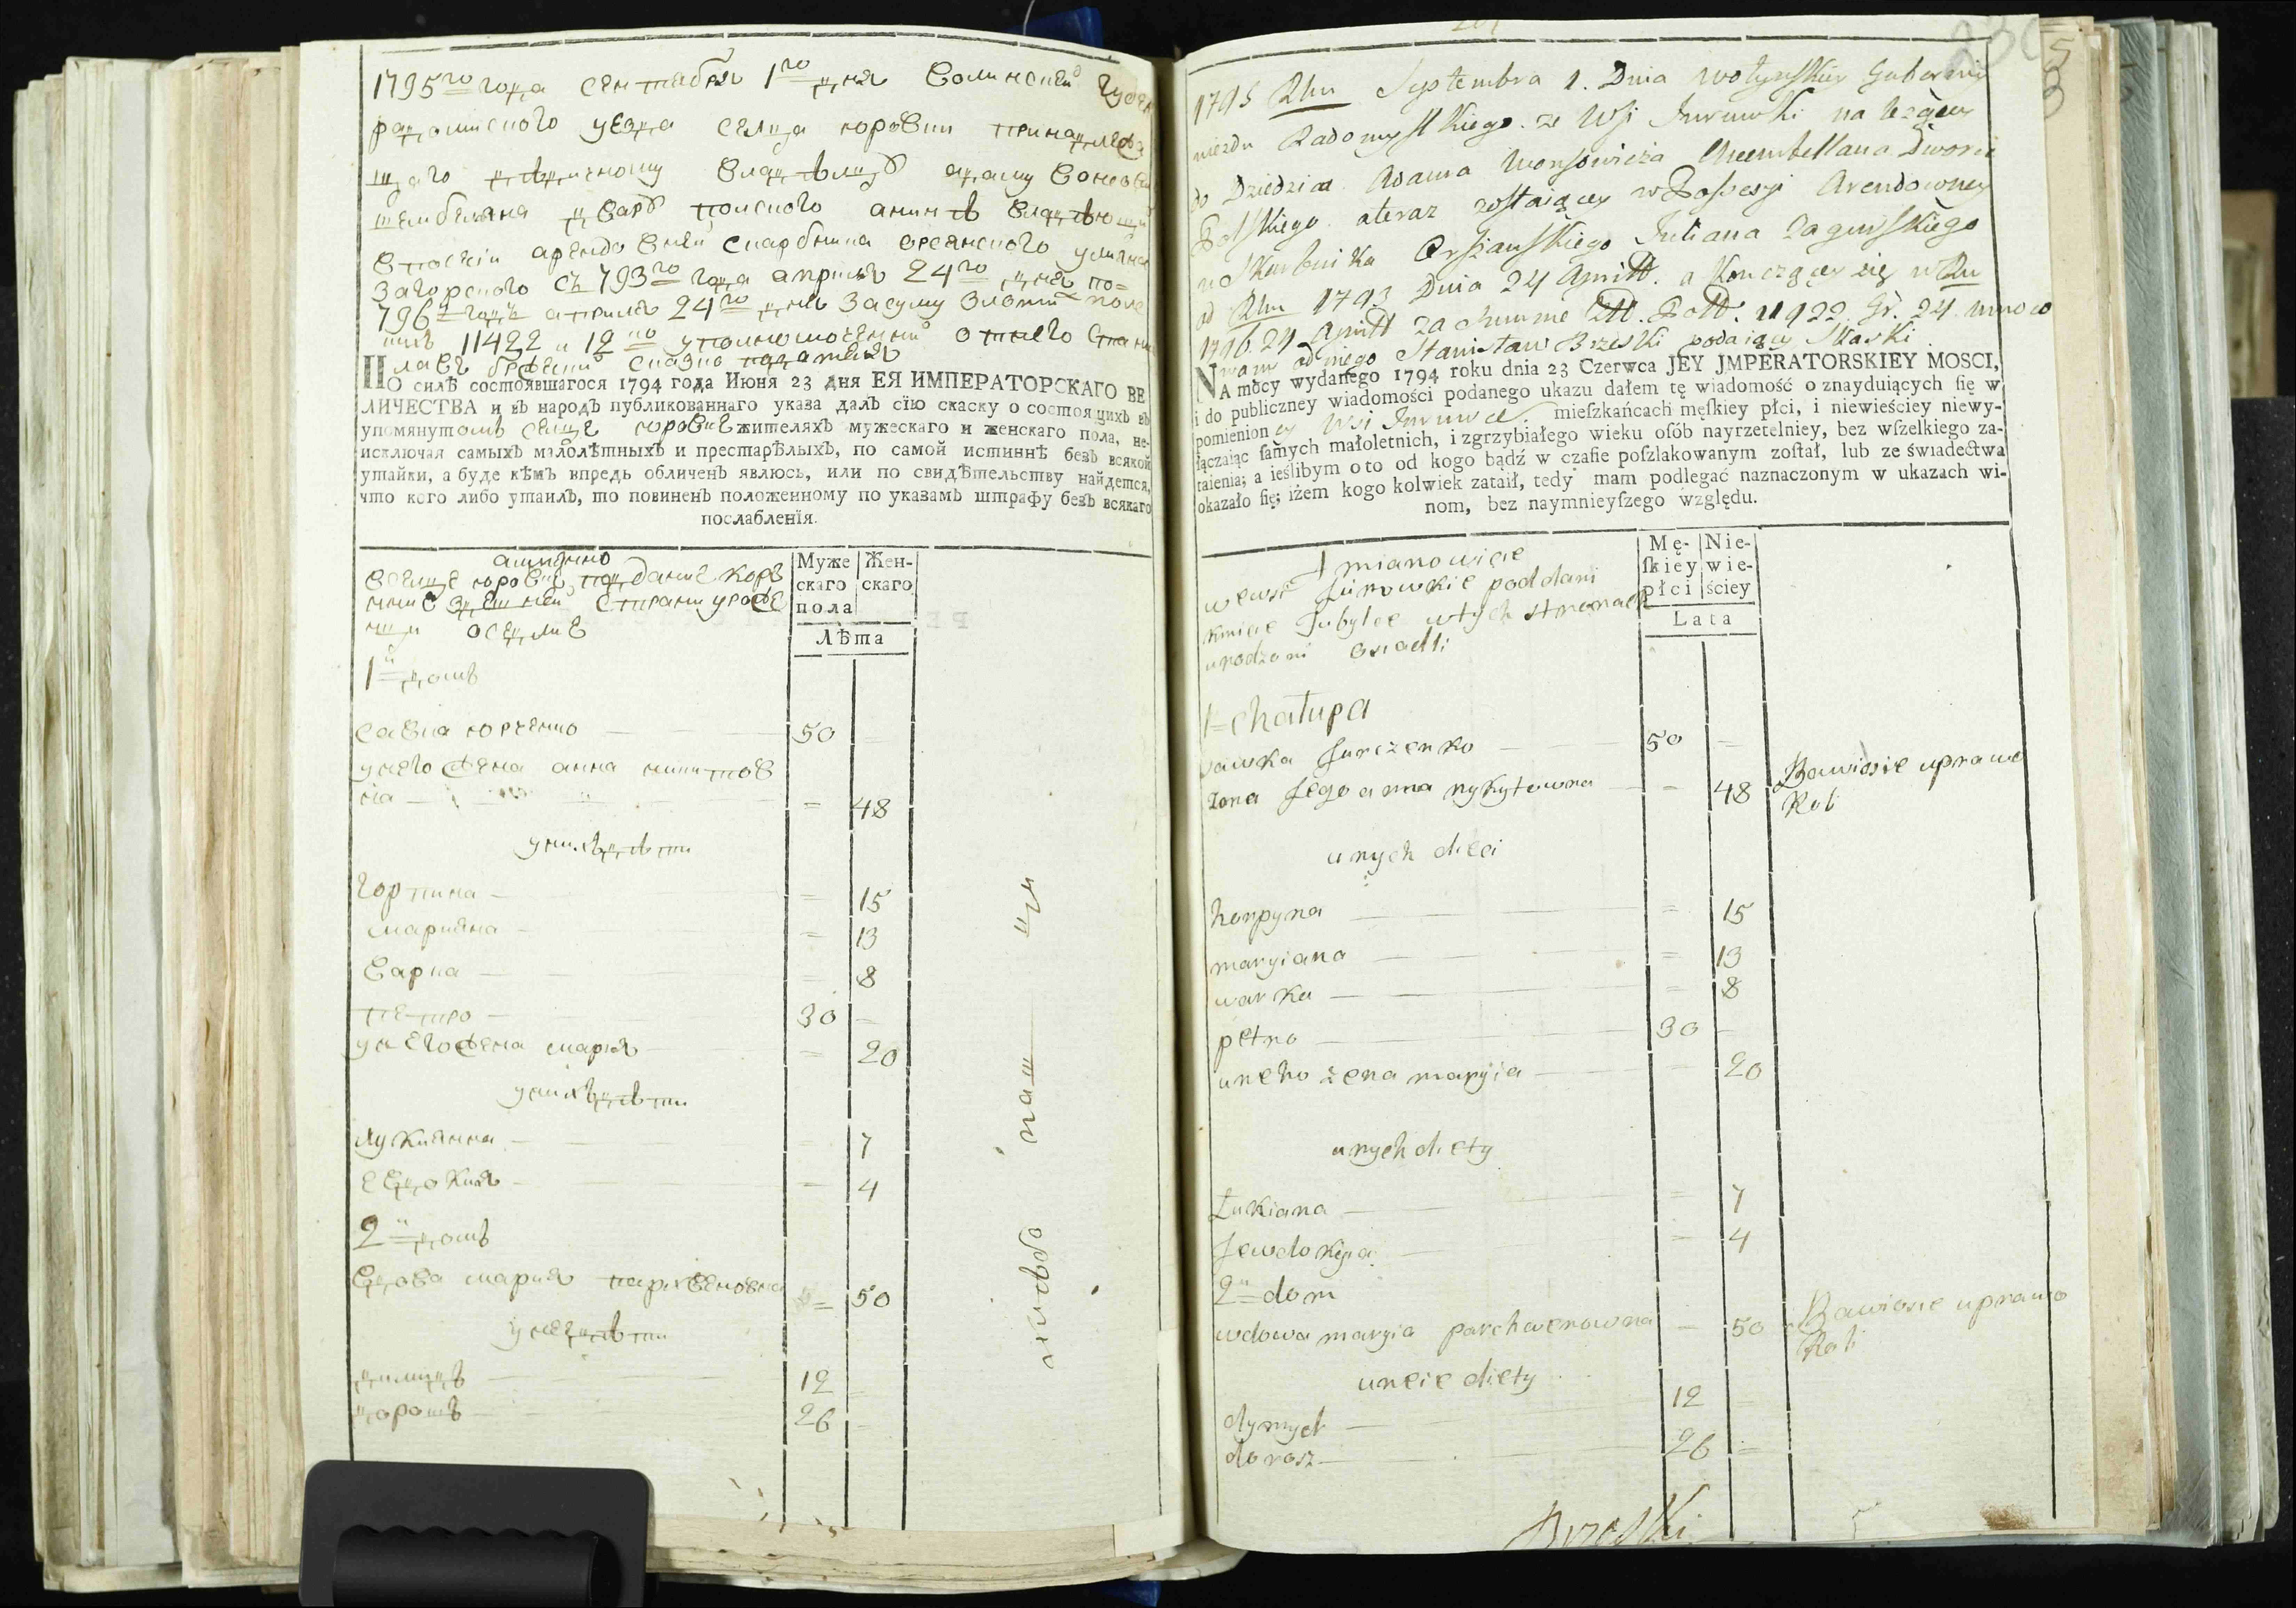 1795го года сентября 1го дня Волинской Губер
радомиского уезда селца юровки принадлежа
щаго дедичному владѣлцу адаму Вонсови
шембеляна двора полского а нинѣ владѣющи
в посесіи арендовней скарбника оршанского улияна
Загорского съ 793го года априля 24го дня по=
796й годъ априля 24го дня за суму злотий поле
ких 11422 и 12 уполномоченний от него Стани
славъ бржеский сказку подаетъ
По силѣ состоявшагося 1794 года Июня 23 дня ЕЯ ИМПЕРАТОРСКАГО ВЕ
ЛИЧЕСТВА и въ народъ публикованнаго указа далъ сїю скаску о состоящихъ въ
упомянутомъ селце юровке жителяхъ мужескаго и женскаго пола, не-
исключая самыхъ малолѣтныхъ и престарѣлыхъ, по самой истиннѣ безъ всякой
утайки, а буде кѣмъ впредь обличенъ явлюсь, или по свидѣтельству найдется,
что кого либо утаилъ, то повиненъ положенному по указамъ штрафу безъ всякаго
послабленїя.
а имянно
в селце юровке поддание коре
ние здешней страни уроже
нци оседлие
Муже
скаго
пола
Жен-
скаго
Лѣта
1й домъ
савка юрченко 50 =
у него жена анна никитов
на = 48
у них дѣти
горпина = 15
марияна = 13
варка = 8
петро 30 =
у него жена мария = 20
у них дѣти
лукиянна = 7
евдокия = 4
2й домъ
вдова мария пархвеновна = 50
у неи дѣти
димидъ 12 =
дорошъ 26 =
хлѣбо паш ци
1795 Rku Septembra 1. Dnia wołyńskiey Guberniy
uiezdu Radomyslkiego ze Wsi Jurowki należącey
do Dziedzica Adama Wonsowicza Szembellana Dworu
Polskiego a teraz zostaiącey w Possesyi Arendowney
u Skarbnika Orszańskiego Juliana Zagurskiego
od Rku 1793 Dnia 24 Aprill. a Kończącey się w Rku
1796. 24 Aprill za summe Zlł. Poll. 11922. Gr. 24. umoco
wany od niego Stanisław Brzeski podaiący Skaski
NA mocy wydanego 1794 roku dnia 23 Czerwca JEY JMPERATORSKIEY MOSCI,
i do publiczney wiadomości podanego ukazu dałem tę wiadomość o znayduiących się w
pomienioney Wsi Jurowce mieſzkańcach męſkiey płci, i niewieściey niewy-
łączaiąc ſamych małoletnich, i zgrzybiałego wieku oſób nayrzetelniey, bez wſzelkiego za-
taienia; a ieślibym o to od kogo bądź w czaſie poſzlakowanym zoſtał, lub ze świadectwa
okazało ſię; iżem kogo kolwiek zataił, tedy mam podlegać naznaczonym w ukazach wi-
nom, bez naymnieyſzego względu.
A mianowicie
w ewsi Jurowkie poddani
kmiecie Jubylce w tych stronach
urodzoni osiadłi
Mę-
ſkiey
płci
Nie-
wie-
ściey
Lata
1= chałupa
sawka Jurczenko 50 =
zona Jego anna nykytowna = 48 Bawiosie uprawo
Roli
u nych dieci
horpyna = 15
maryiana = 13
warka = 8
petro 30 =
u neho żena maryia = 20
u nych diety
Łukiana = 7
Jewdokyia = 4
2й dom
wdowa maryia parchwenowna = 50 Bawiosie uprawo
Roli
u neie diety
dymyd 12
dorosz 26 =
Brzeski